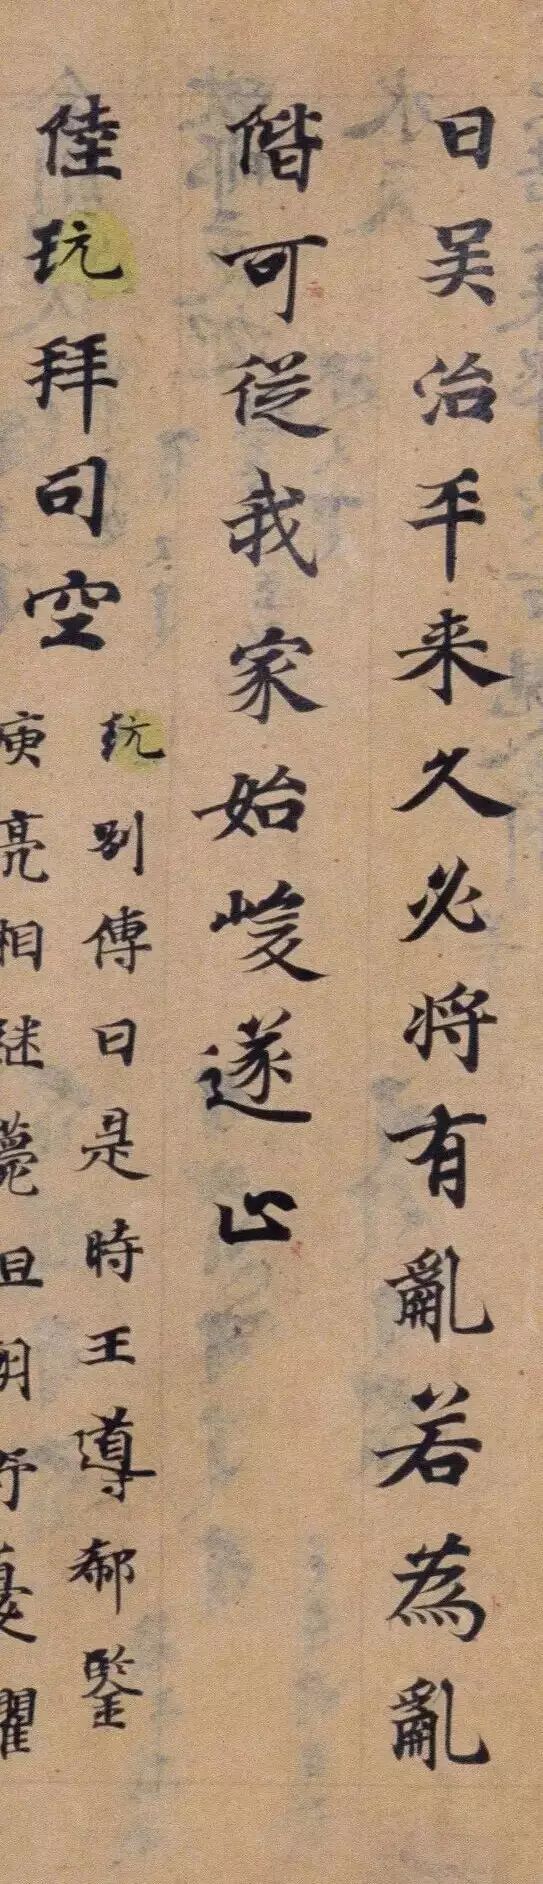 日吴治平来久必将有亂若為亂
階可従我家始峻遂止
陸玩拜司空
玩別傳曰是時王導郗鑒
庾亮相継薨且朝野憂懼